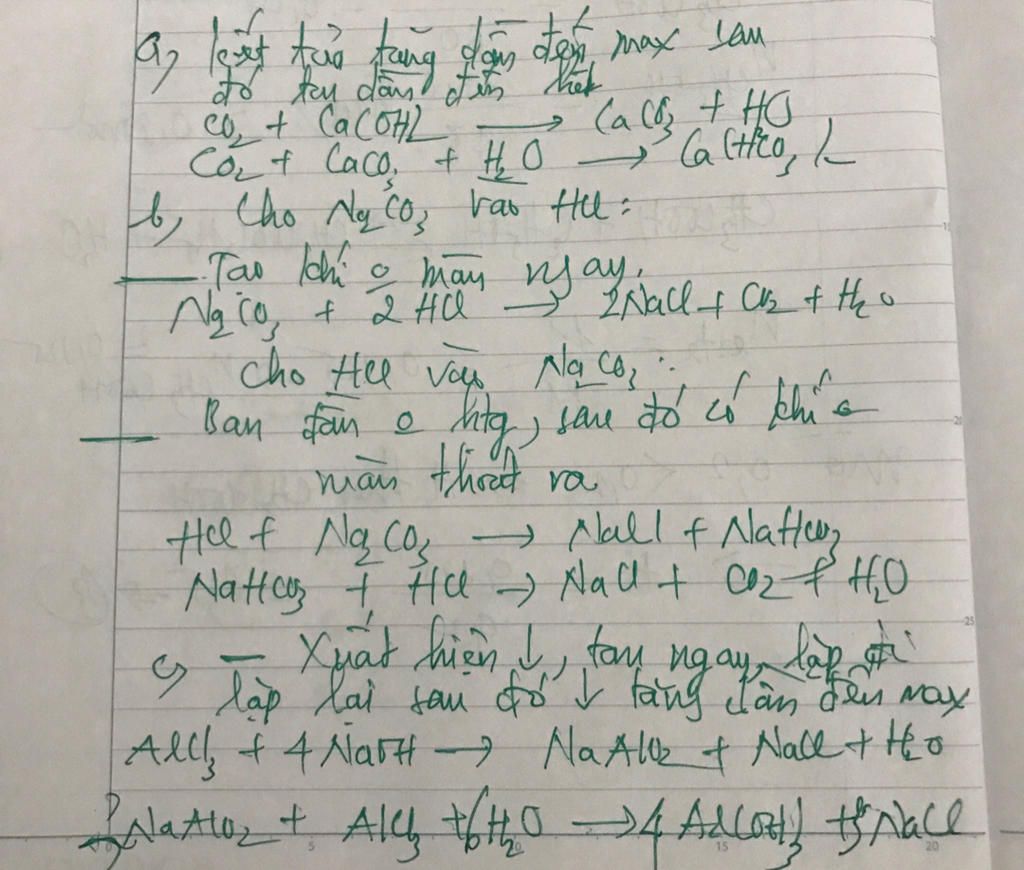 a, kết tủa tăng dần đến max sau
đó tan dần đến hết
CO₂ + Ca(OH)₂ → CaCO₃ + H₂O
CO₂ + CaCO₃ + H₂O → Ca(HCO₃)₂
b, Cho Na₂CO₃ vào HCl:
Tạo khí o màu ngay.
Na₂CO₃ + 2HCl → 2NaCl + CO₂ + H₂O
Cho HCl vào Na₂CO₃:
Ban đầu o htg, sau đó có khí o
màu thoát ra
HCl + Na₂CO₃ → NaCl + NaHCO₃
NaHCO₃ + HCl → NaCl + CO₂ + H₂O
c, – Xuất hiện ↓, tan ngay, lặp đi
lặp lại sau đó ↓ tăng dần đến max
AlCl₃ + 4NaOH → NaAlO₂ + NaCl + H₂O
3NaAlO₂ + AlCl₃ + 6H₂O → 4Al(OH)₃ + 3NaCl